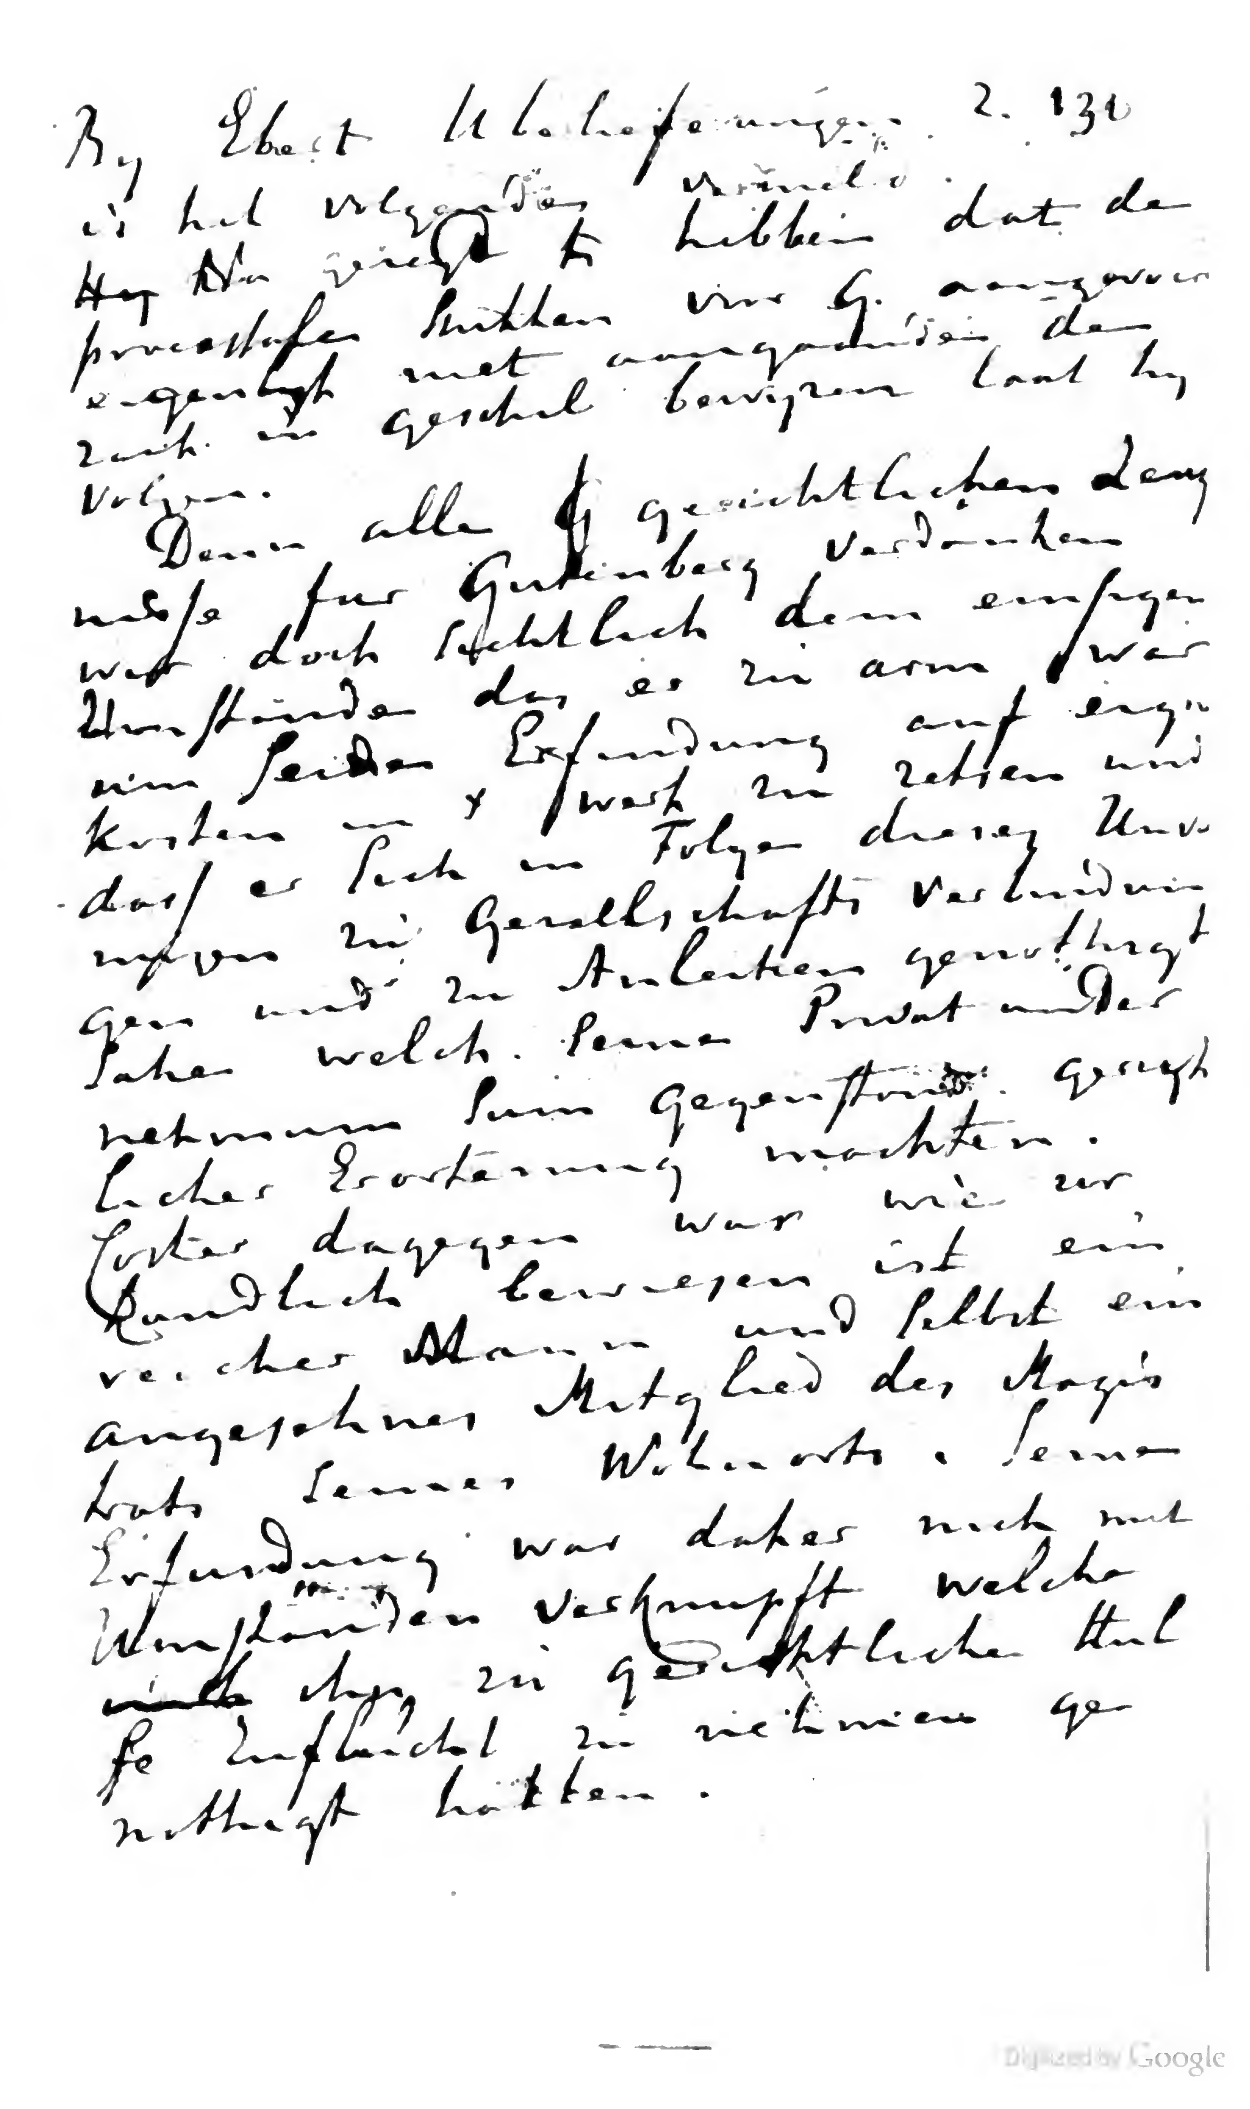 By Ebert Uberlieferungen 2. 131
is het volgende vermeld.
Hey Na gezegt te hebben dat de
processtafen stukken voor G. aangevoer
eigenlyk niet aangaande de
zaak in geschil bewyzen laat hy
volgen.
Denn alle gerichtlichen Zeug
nisse fur Gutenberg verdanken
wir doch sichtlich dem einsigen
Umstande das er zu arm war
um seine Erfindung auf eigne
kosten in werk zu zetsen und
dass er sich in Folge dieses Unve
mogen zu Gesellschafts verbindun
gen und zu Anleihen genothigt
sahe welch. seine Privat under
nehmum zum gegenstand gericht
licher Erorterung machten.
Coster dagegen war wie ur
kundlich bewiesen ist ein
reicher Mann und selbst ein
angesehnes Mitglied des Magis
trats seines Wohnorts. Seine
Erfindung war daher nich mit
Umstanden verknupft welche
ihn zu gerichtliche Hul
fe Zuflucht zu nehmen ge
nothigt hatten.
Digitized by Google